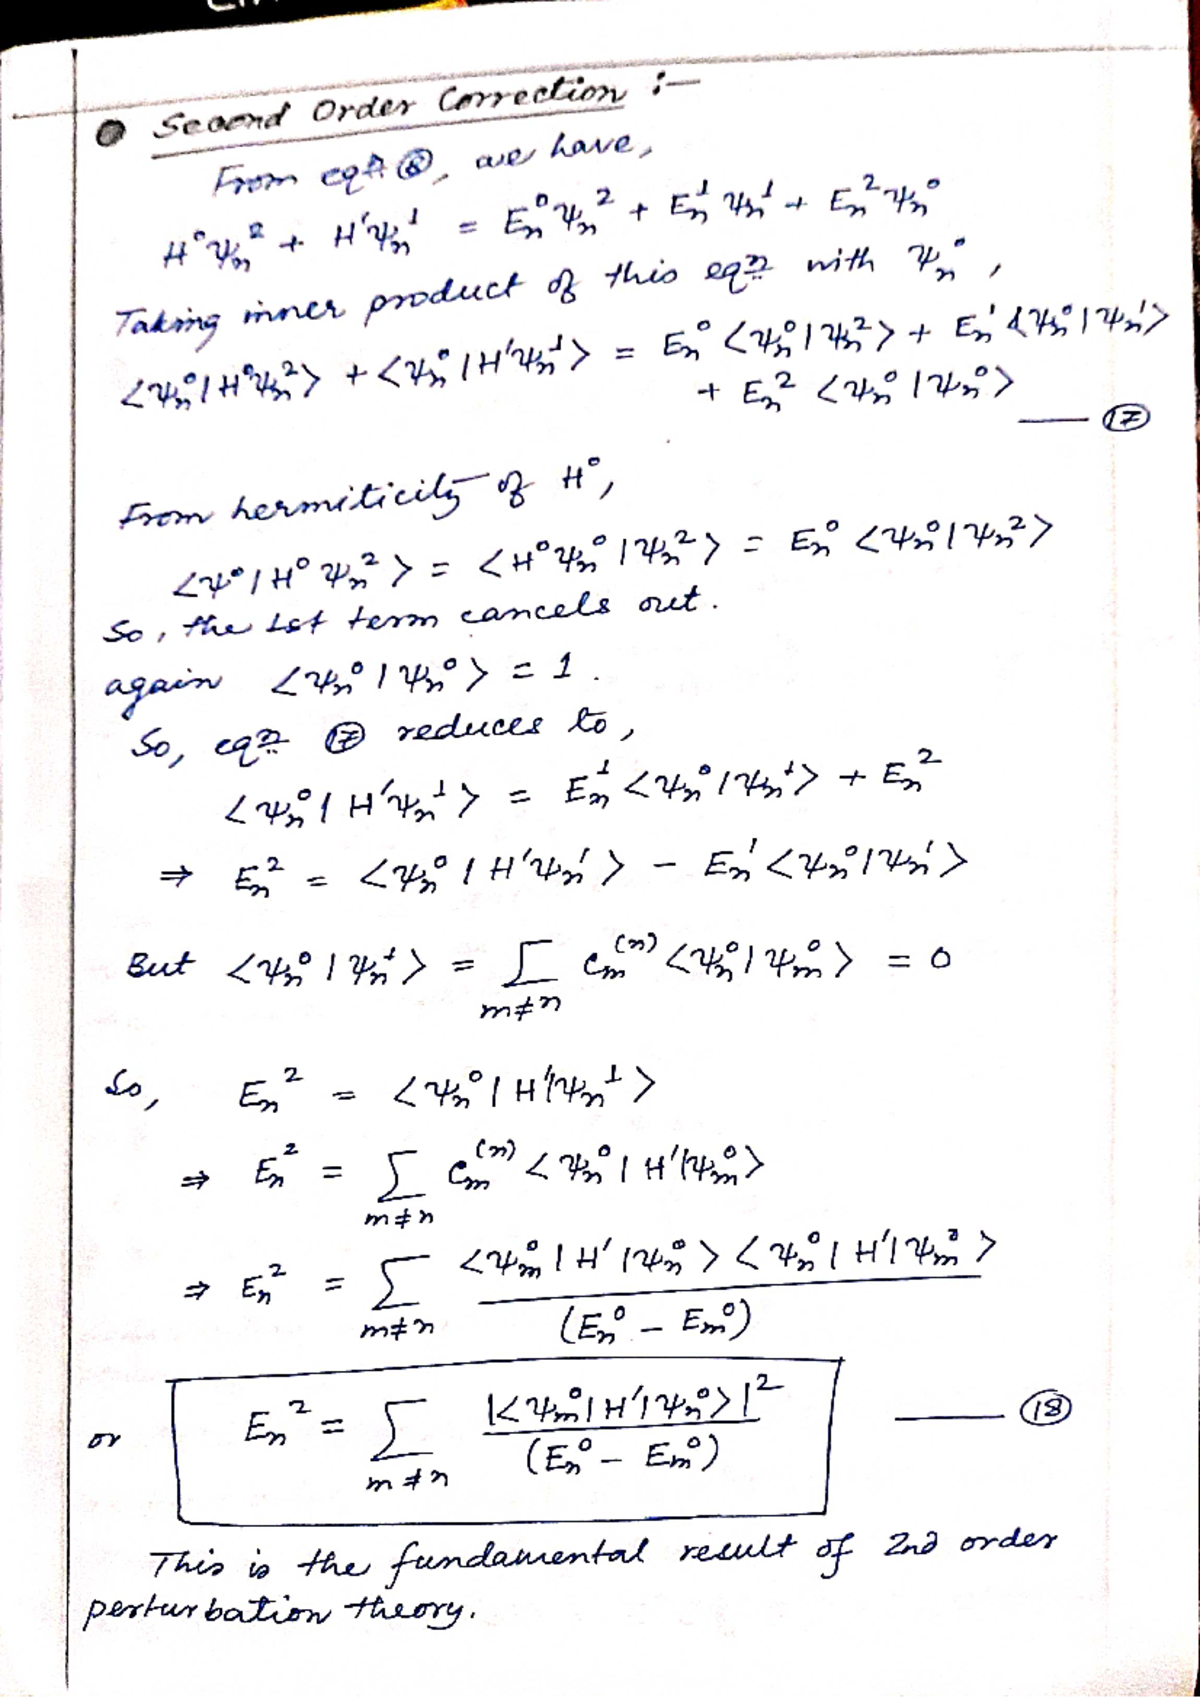 ● Second Order Correction :—
From eqn ⑧, we have,
H⁰ψₙ² + H'ψₙ¹ = Eₙ⁰ψₙ² + Eₙ¹ψₙ¹ + Eₙ²ψₙ⁰
Taking inner product of this eqn with ψₙ⁰,
<ψₙ⁰|H⁰ψₙ²> + <ψₙ⁰|H'ψₙ¹> = Eₙ⁰<ψₙ⁰|ψₙ²> + Eₙ'<ψₙ⁰|ψₙ'>
+ Eₙ²<ψₙ⁰|ψₙ⁰>
— ⑰
From hermiticity of H⁰,
<ψ⁰|H⁰ψₙ²> = <H⁰ψₙ⁰|ψₙ²> = Eₙ⁰<ψₙ⁰|ψₙ²>
So, the 1st term cancels out.
again <ψₙ⁰|ψₙ⁰> = 1.
So, eqn ⑰ reduces to,
<ψₙ⁰|H'ψₙ¹> = Eₙ¹<ψₙ⁰|ψₙ¹> + Eₙ²
⇒ Eₙ² = <ψₙ⁰|H'ψₙ'> – Eₙ'<ψₙ⁰|ψₙ'>
But <ψₙ⁰|ψₙ¹> = Σ_{m≠n} cₘ⁽ⁿ⁾<ψₙ⁰|ψₘ⁰> = 0
So, Eₙ² = <ψₙ⁰|H'|ψₙ¹>
⇒ Eₙ² = Σ_{m≠n} cₘ⁽ⁿ⁾<ψₙ⁰|H'|ψₘ⁰>
⇒ Eₙ² = Σ_{m≠n} <ψₘ⁰|H'|ψₙ⁰><ψₙ⁰|H'|ψₘ⁰> / (Eₙ⁰ – Eₘ⁰)
or Eₙ² = Σ_{m≠n} |<ψₘ⁰|H'|ψₙ⁰>|² / (Eₙ⁰ – Eₘ⁰) — ⑱
This is the fundamental result of 2nd order
perturbation theory.